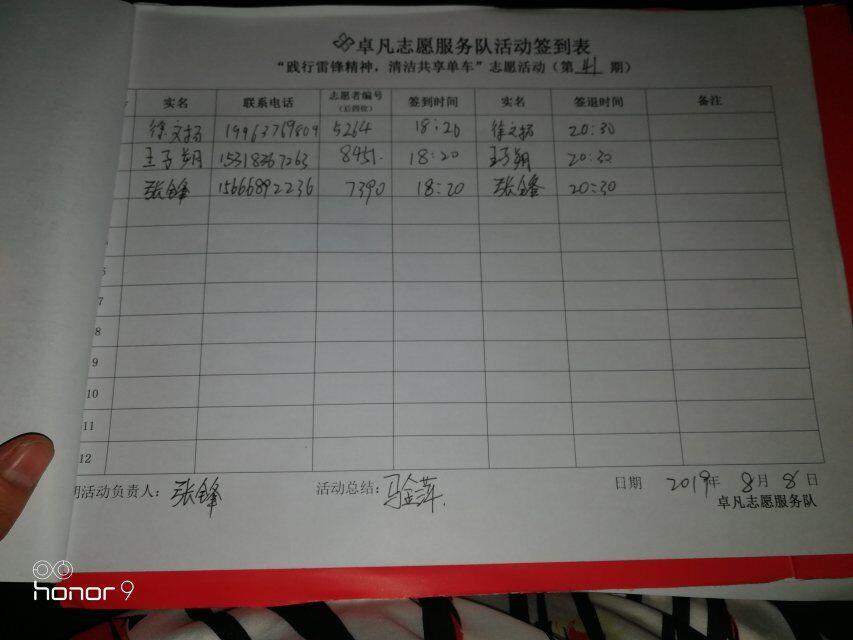 卓凡志愿服务队活动签到表
“践行雷锋精神，清洁共享单车”志愿活动（第 41 期）
实名 联系电话 志愿者编号（后四位） 签到时间 实名 签退时间 备注
徐文扬 19963769809 5264 18:20 徐文扬 20:30
王子朔 15318367263 8451. 18:20 王子朔 20:30
张锋 15666892236 7390 18:20 张锋 20:30
7
8
9
10
11
12
期活动负责人：张锋 活动总结：马金萍. 日期 2019年 8月 8日
卓凡志愿服务队
honor 9